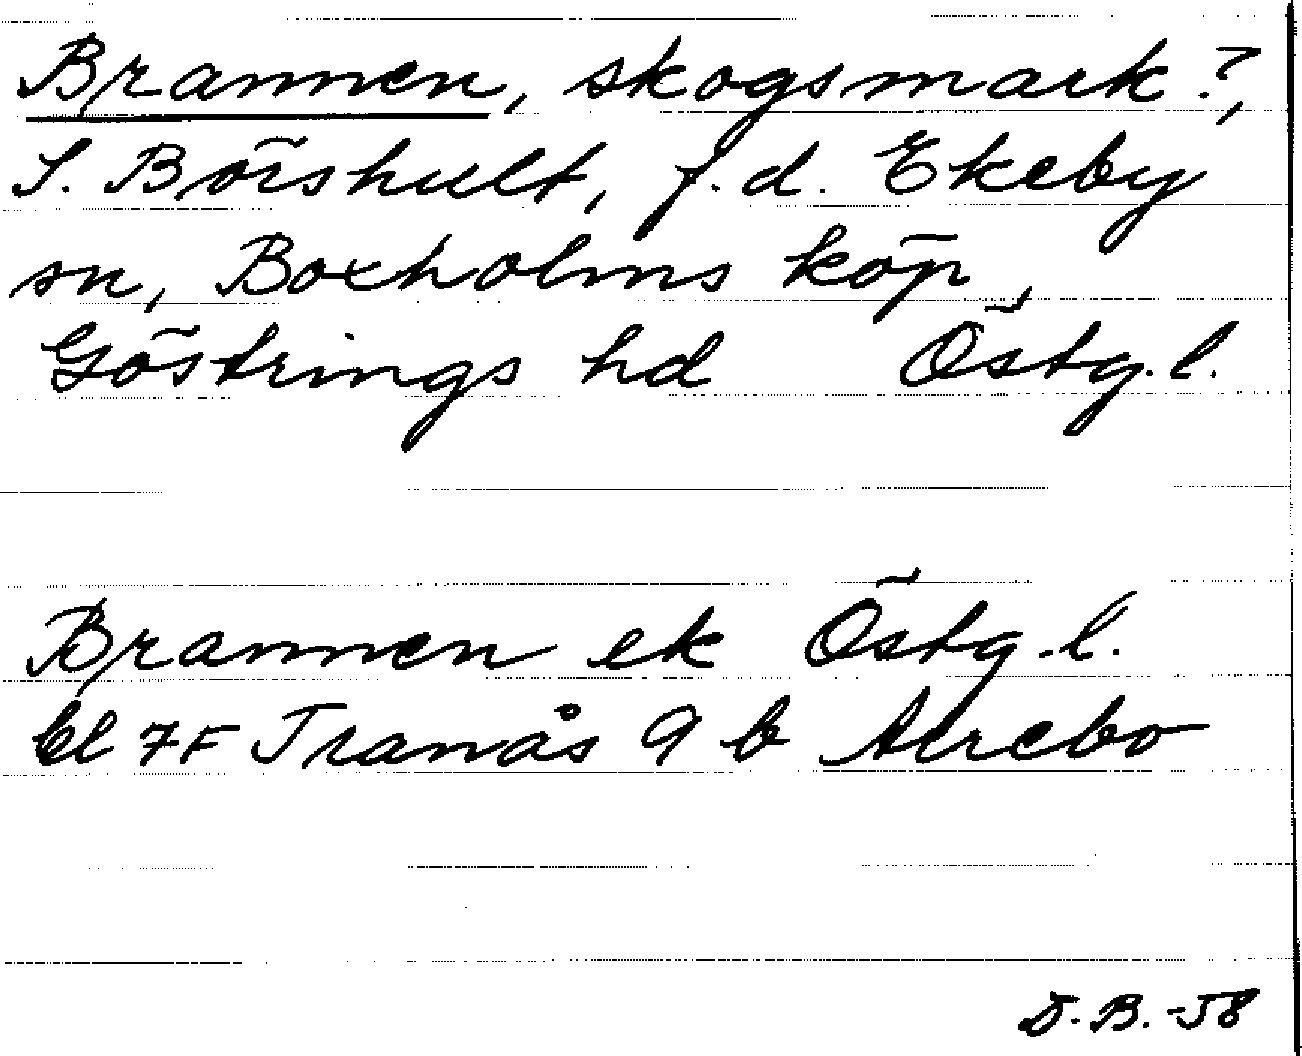 Brannen, skogsmark?,
S. Börshult, f.d. Ekeby
sn, Boxholms köp,
Göstrings hd Östg.l.
Brannen ek Östg.l.
bl 7F Tranås 9 b Aurebo
D.B.-58